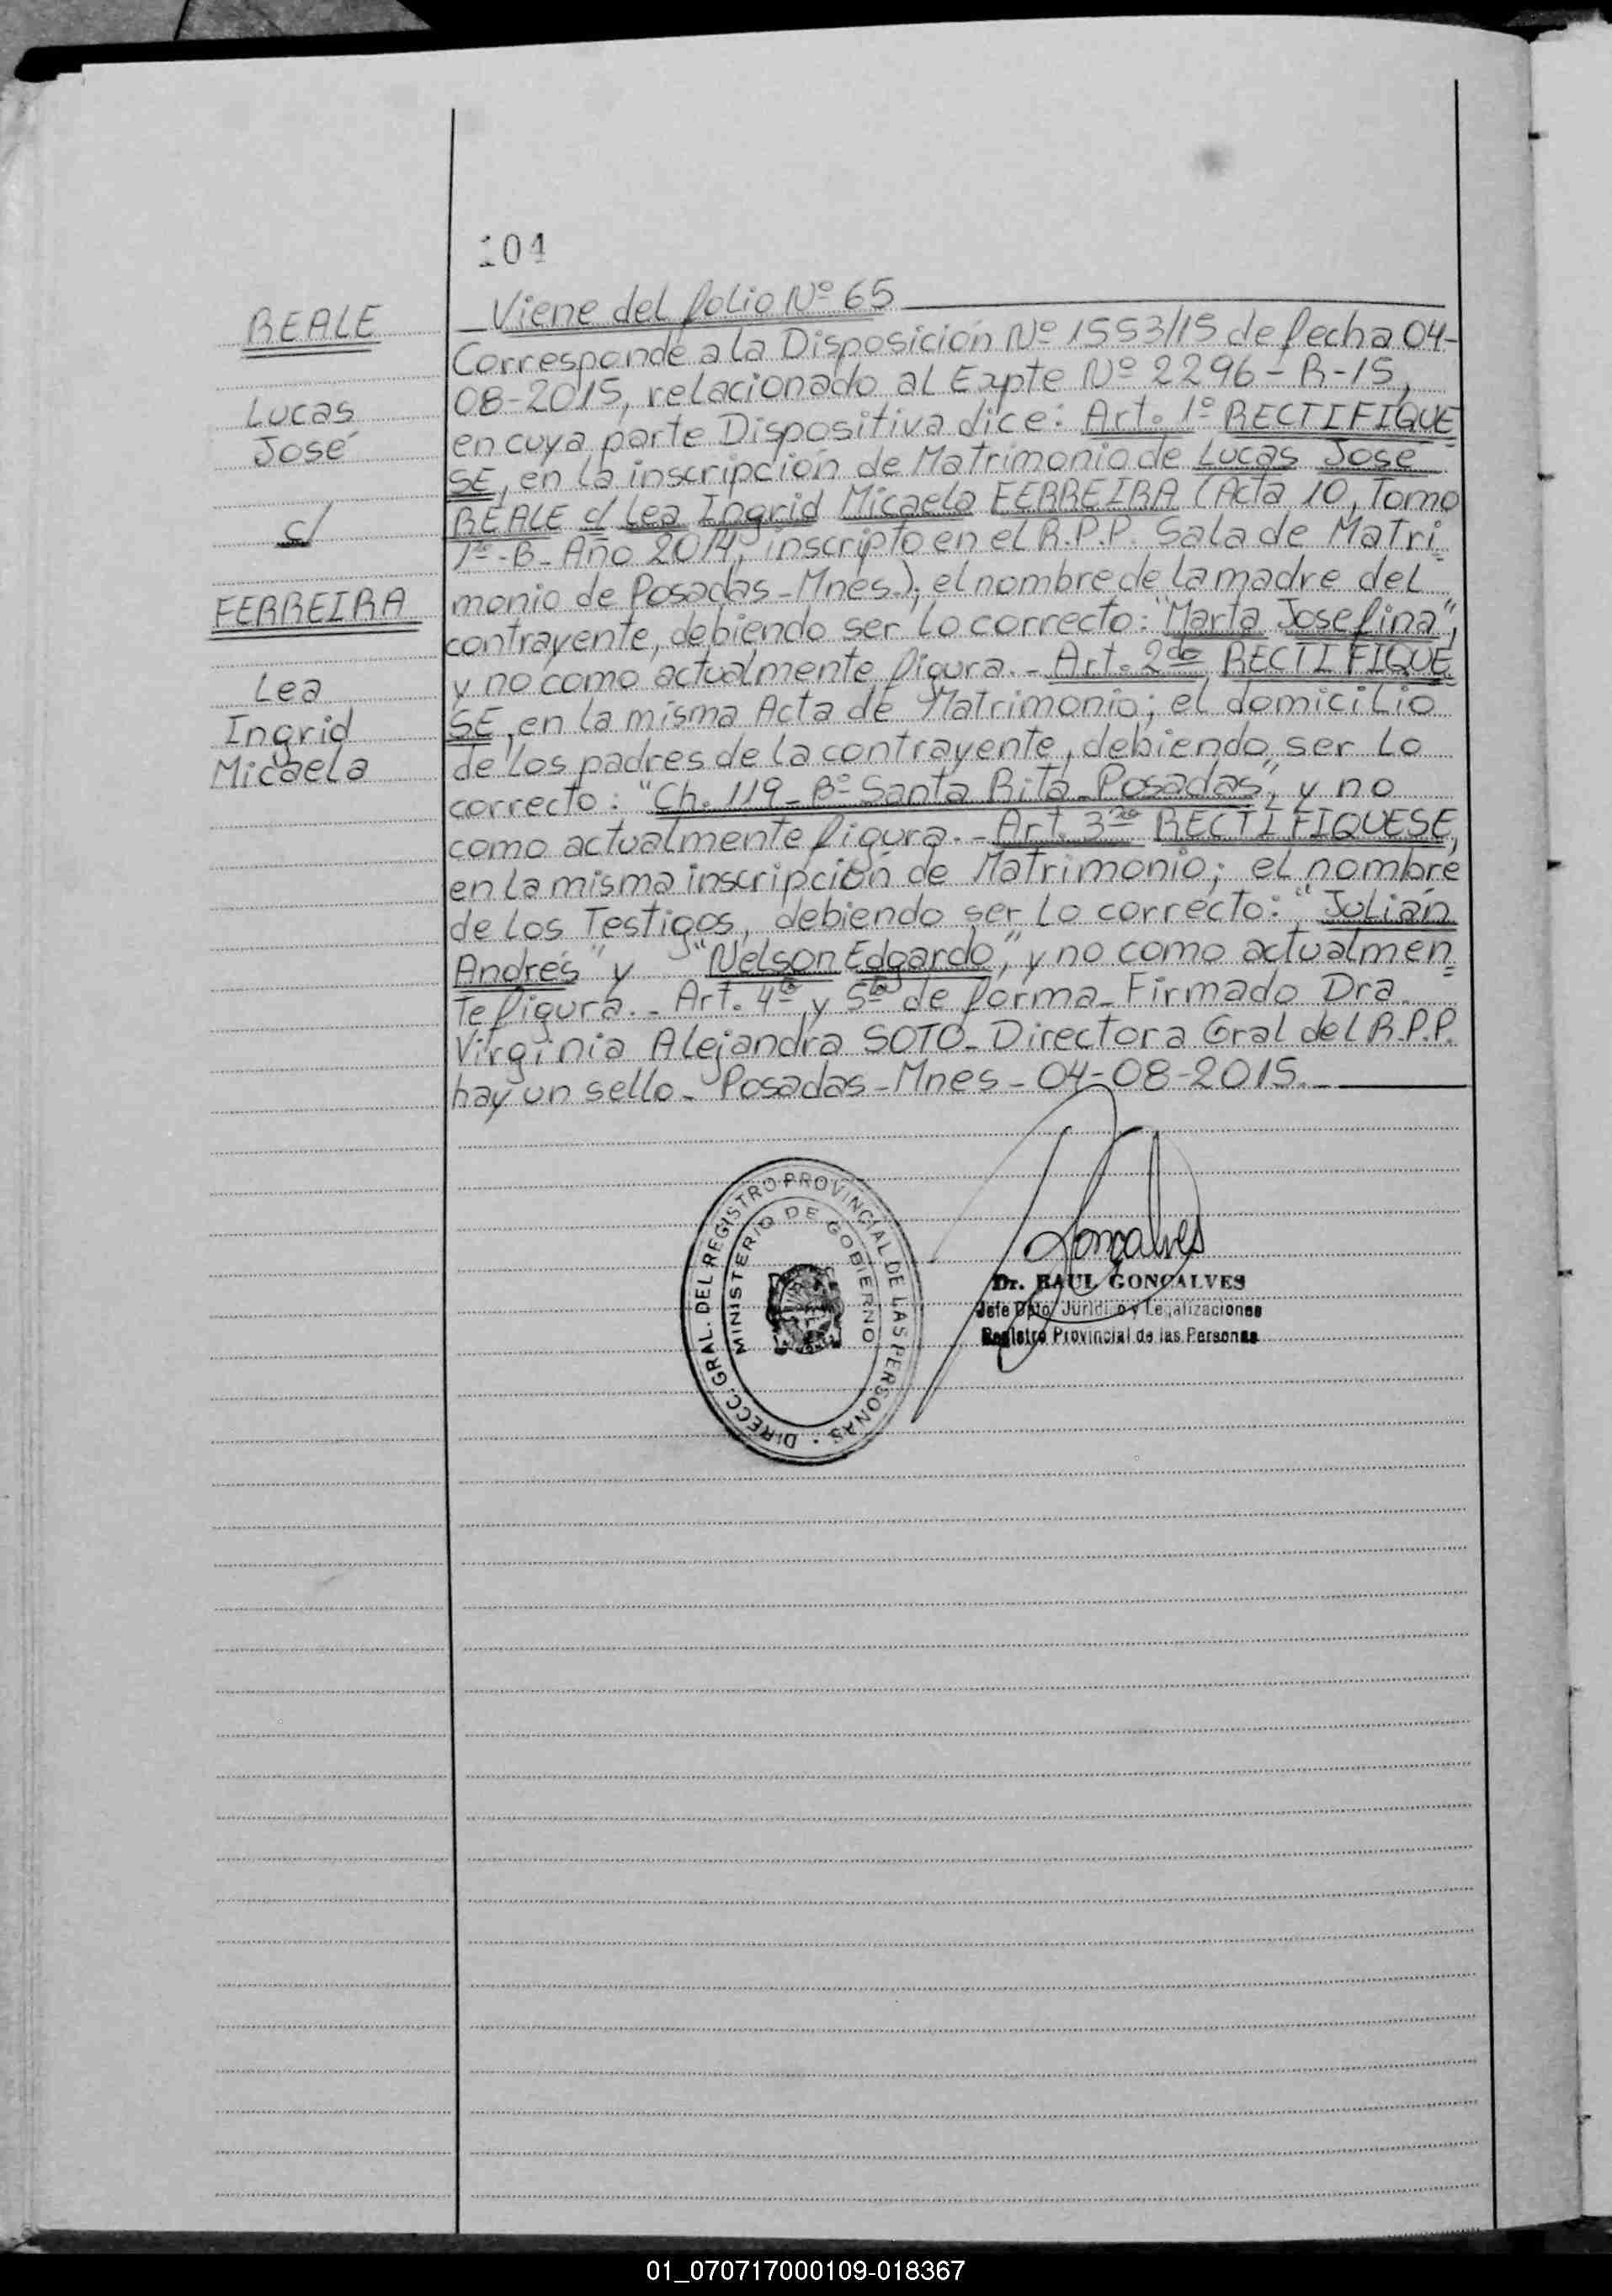 104
REALE
Lucas
José
c/
FERREIRA
Lea
Ingrid
Micaela
Viene del folio Nº 65
Corresponde a la Disposición Nº 1553/15 de fecha 04-
08-2015, relacionado al Expte Nº 2296-R-15,
en cuya parte Dispositiva dice: Art. 1º RECTIFIQUE
SE, en la inscripción de Matrimonio de Lucas José
REALE c/ Lea Ingrid Micaela FERREIRA (Acta 10, Tomo
1º-B- Año 2014, inscripto en el R.P.P. Sala de Matri=
monio de Posadas-Mnes.); el nombre de la madre del
contrayente, debiendo ser lo correcto: "Marta Josefina",
y no como actualmente figura.- Art. 2do RECTIFIQUE
SE, en la misma Acta de Matrimonio; el domicilio
de los padres de la contrayente, debiendo ser lo
correcto: "Ch. 119-Bº Santa Rita-Posadas", y no
como actualmente figura.- Art. 3ro RECTIFIQUESE,
en la misma inscripción de Matrimonio; el nombre
de los Testigos, debiendo ser lo correcto: "Julián
Andrés" y "Nelson Edgardo", y no como actualmen=
te figura.- Art. 4to y 5to de forma- Firmado Dra.
Virginia Alejandra SOTO- Directora Gral del R.P.P.
hay un sello- Posadas-Mnes-04-08-2015.
DIRECC. GRAL. DEL REGISTRO PROVINCIAL DE LAS PERSONAS
MINISTERIO DE GOBIERNO
Gonçalves
Dr. RAUL GONÇALVES
Jefe Dpto. Jurídico y Legalizaciones
Registro Provincial de las Personas
01_070717000109-018367